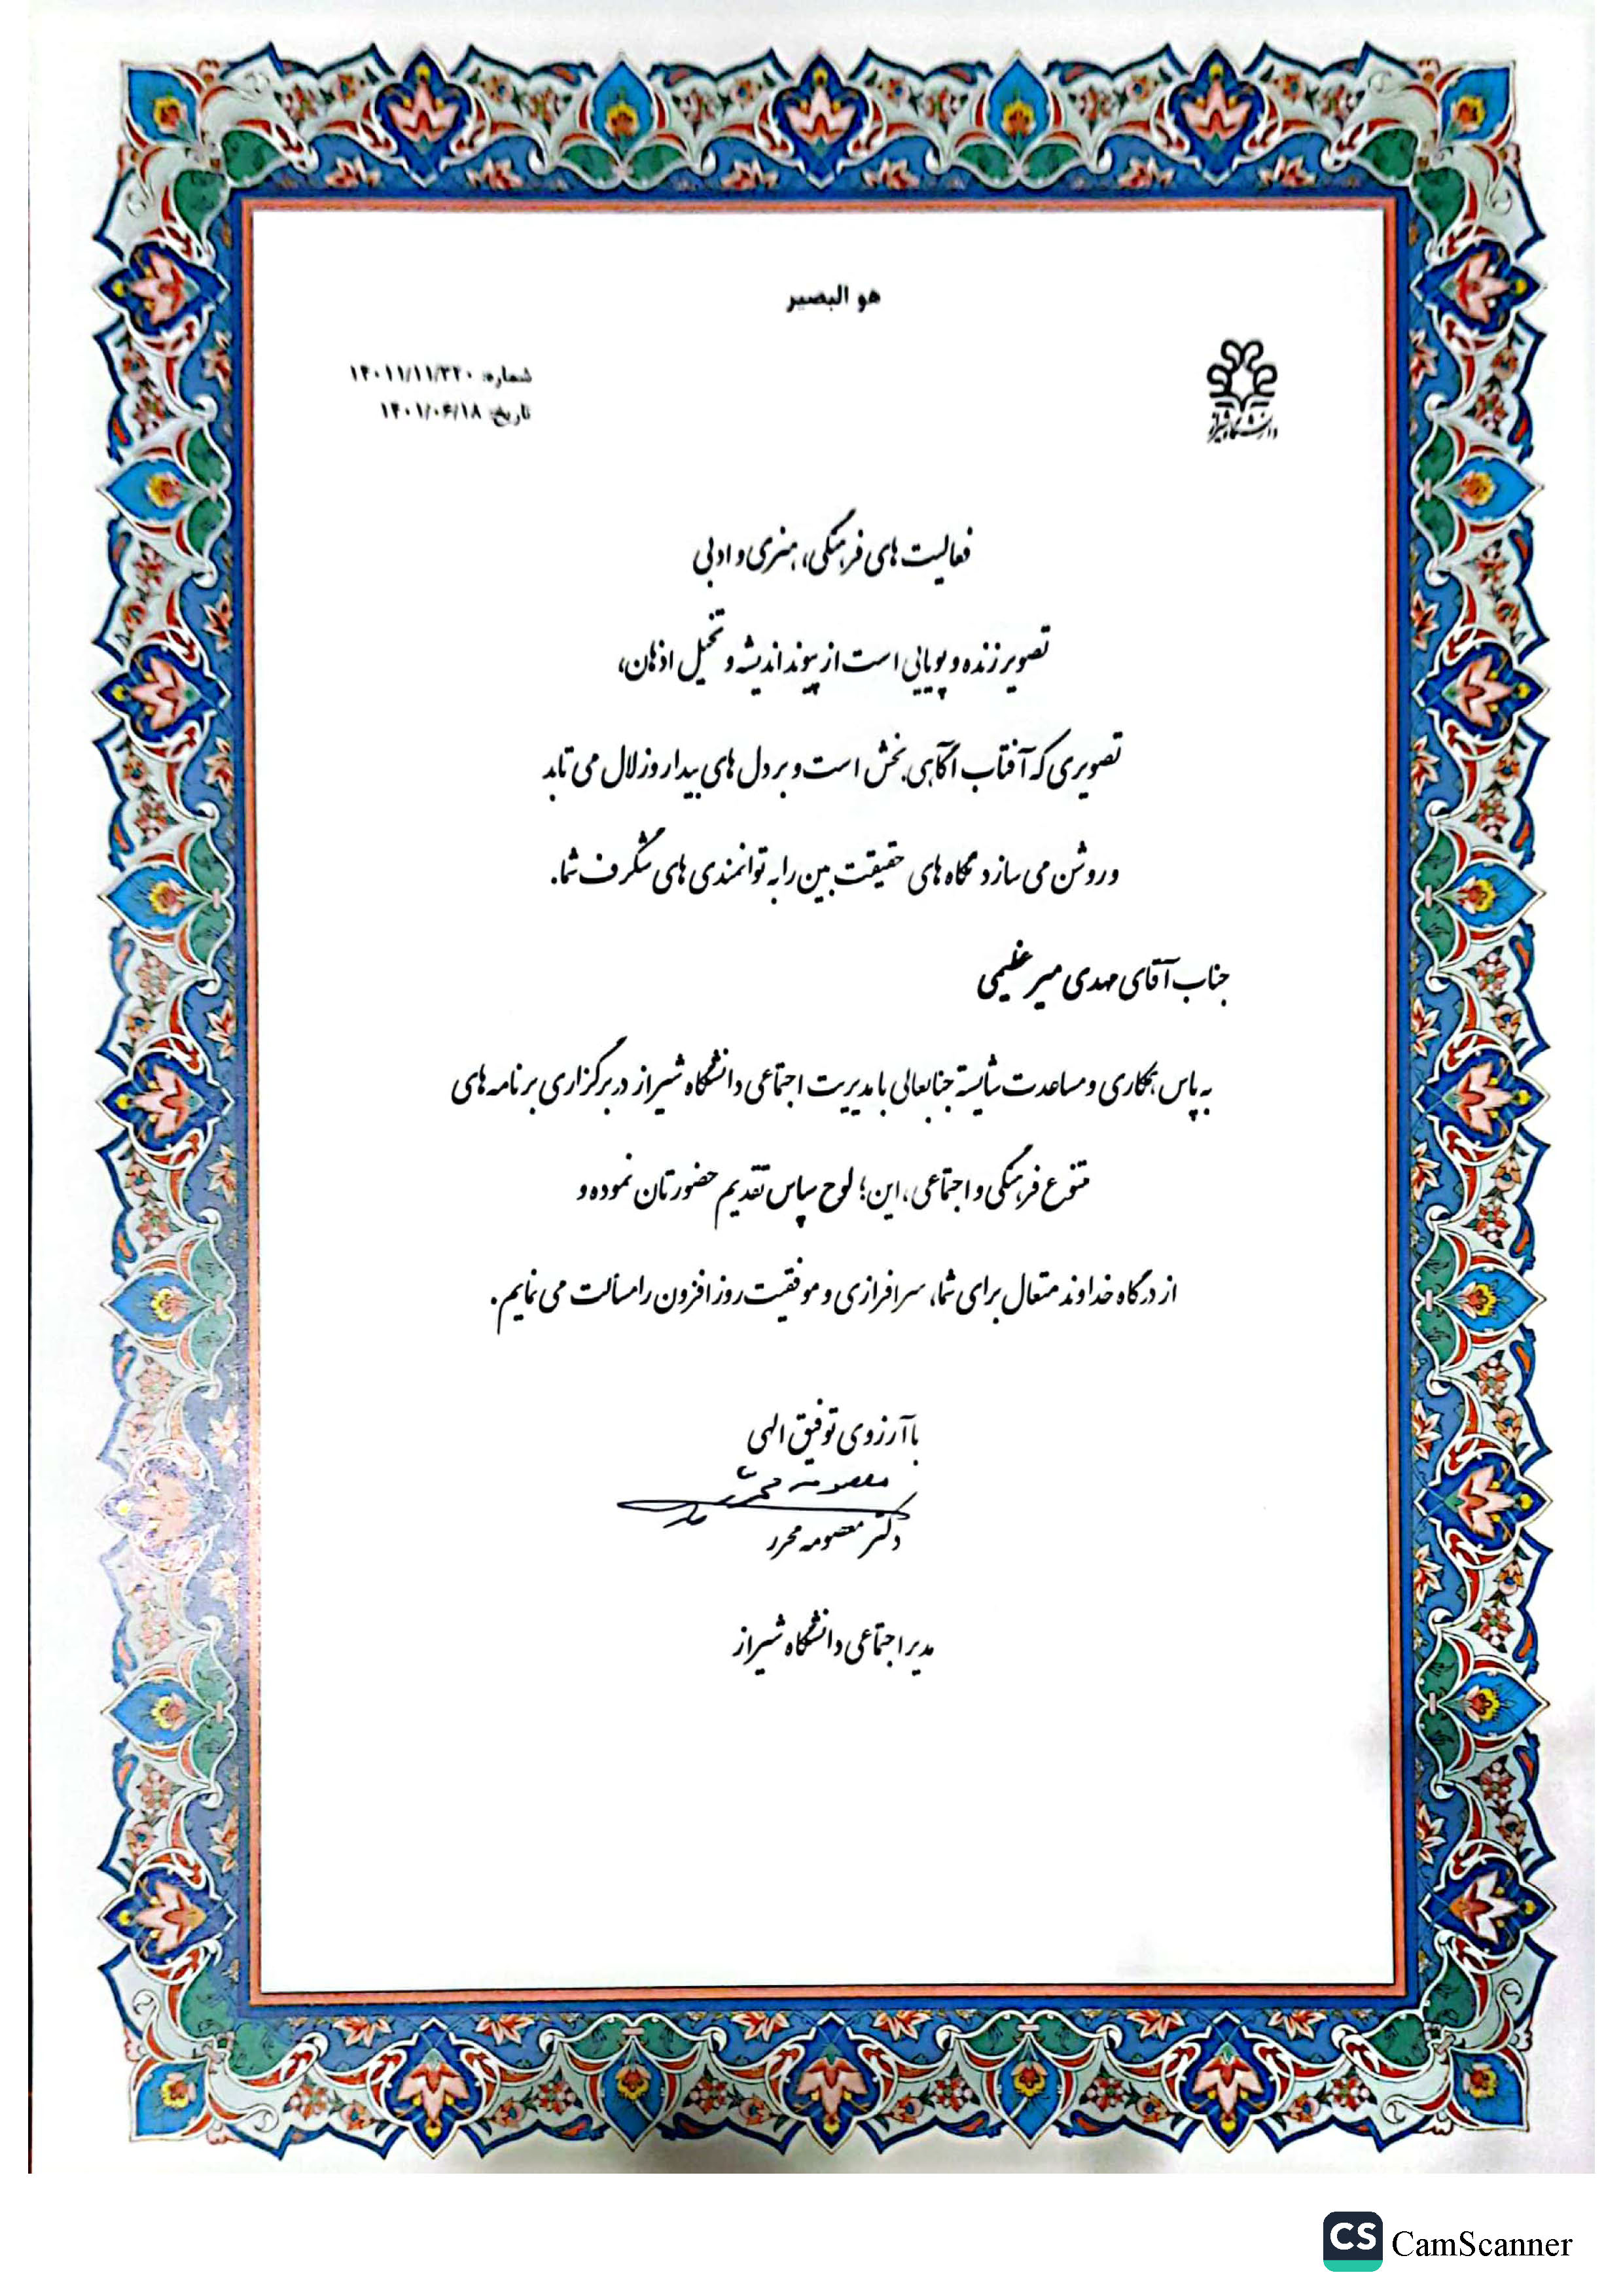 هو البصیر
دانشگاه شیراز
شماره: ۱۴۰۱۱/۱۱/۳۲۰
تاریخ: ۱۴۰۱/۰۶/۱۸
فعالیت های فرهنگی، هنری و ادبی
تصویر زنده و پویایی است از پیوند اندیشه و تخیل اذهان،
تصویری که آفتاب آگاهی بخش است و بر دل های بیدار و زلال می تابد
و روشن می سازد نگاه های حقیقت بین را به توانمندی های شگرف شما.
جناب آقای مهدی میر عظیمی
به پاس همکاری و مساعدت شایسته جنابعالی با مدیریت اجتماعی دانشگاه شیراز در برگزاری برنامه های
متنوع فرهنگی و اجتماعی، این؛ لوح سپاس تقدیم حضورتان نموده و
از درگاه خداوند متعال برای شما، سرافرازی و موفقیت روز افزون را مسألت می نمایم.
با آرزوی توفیق الهی
معصومه محرر
دکتر معصومه محرر
مدیر اجتماعی دانشگاه شیراز
CS CamScanner